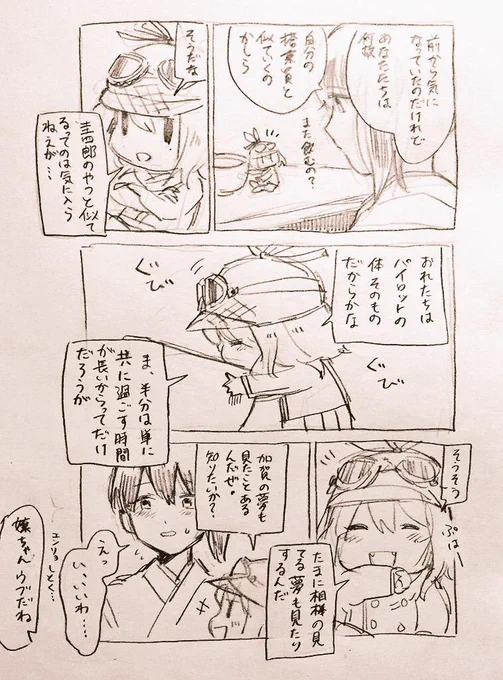 前から気に
なっていたのだけれど
あなたたちは
何故
自分の
搭乗員と
似ていくの
かしら
また飲むの?
そうだな
圭四郎のやつと似て
るってのは気に入ら
ねえが…
おれたちは
パイロットの
体そのもの
だからかな
ぐび
ぐび
ま、半分は単に
共に過ごす時間
が長いからってだけ
だろうが
そうそう
ぷはー
たまに相棒の見
てる夢も見たり
するんだ
加賀の夢も
見たことある
んだぜ。
知りたいか?
えっ
い、いいわ…
エンリョ
しとく…
嬢ちゃん
ウブだね